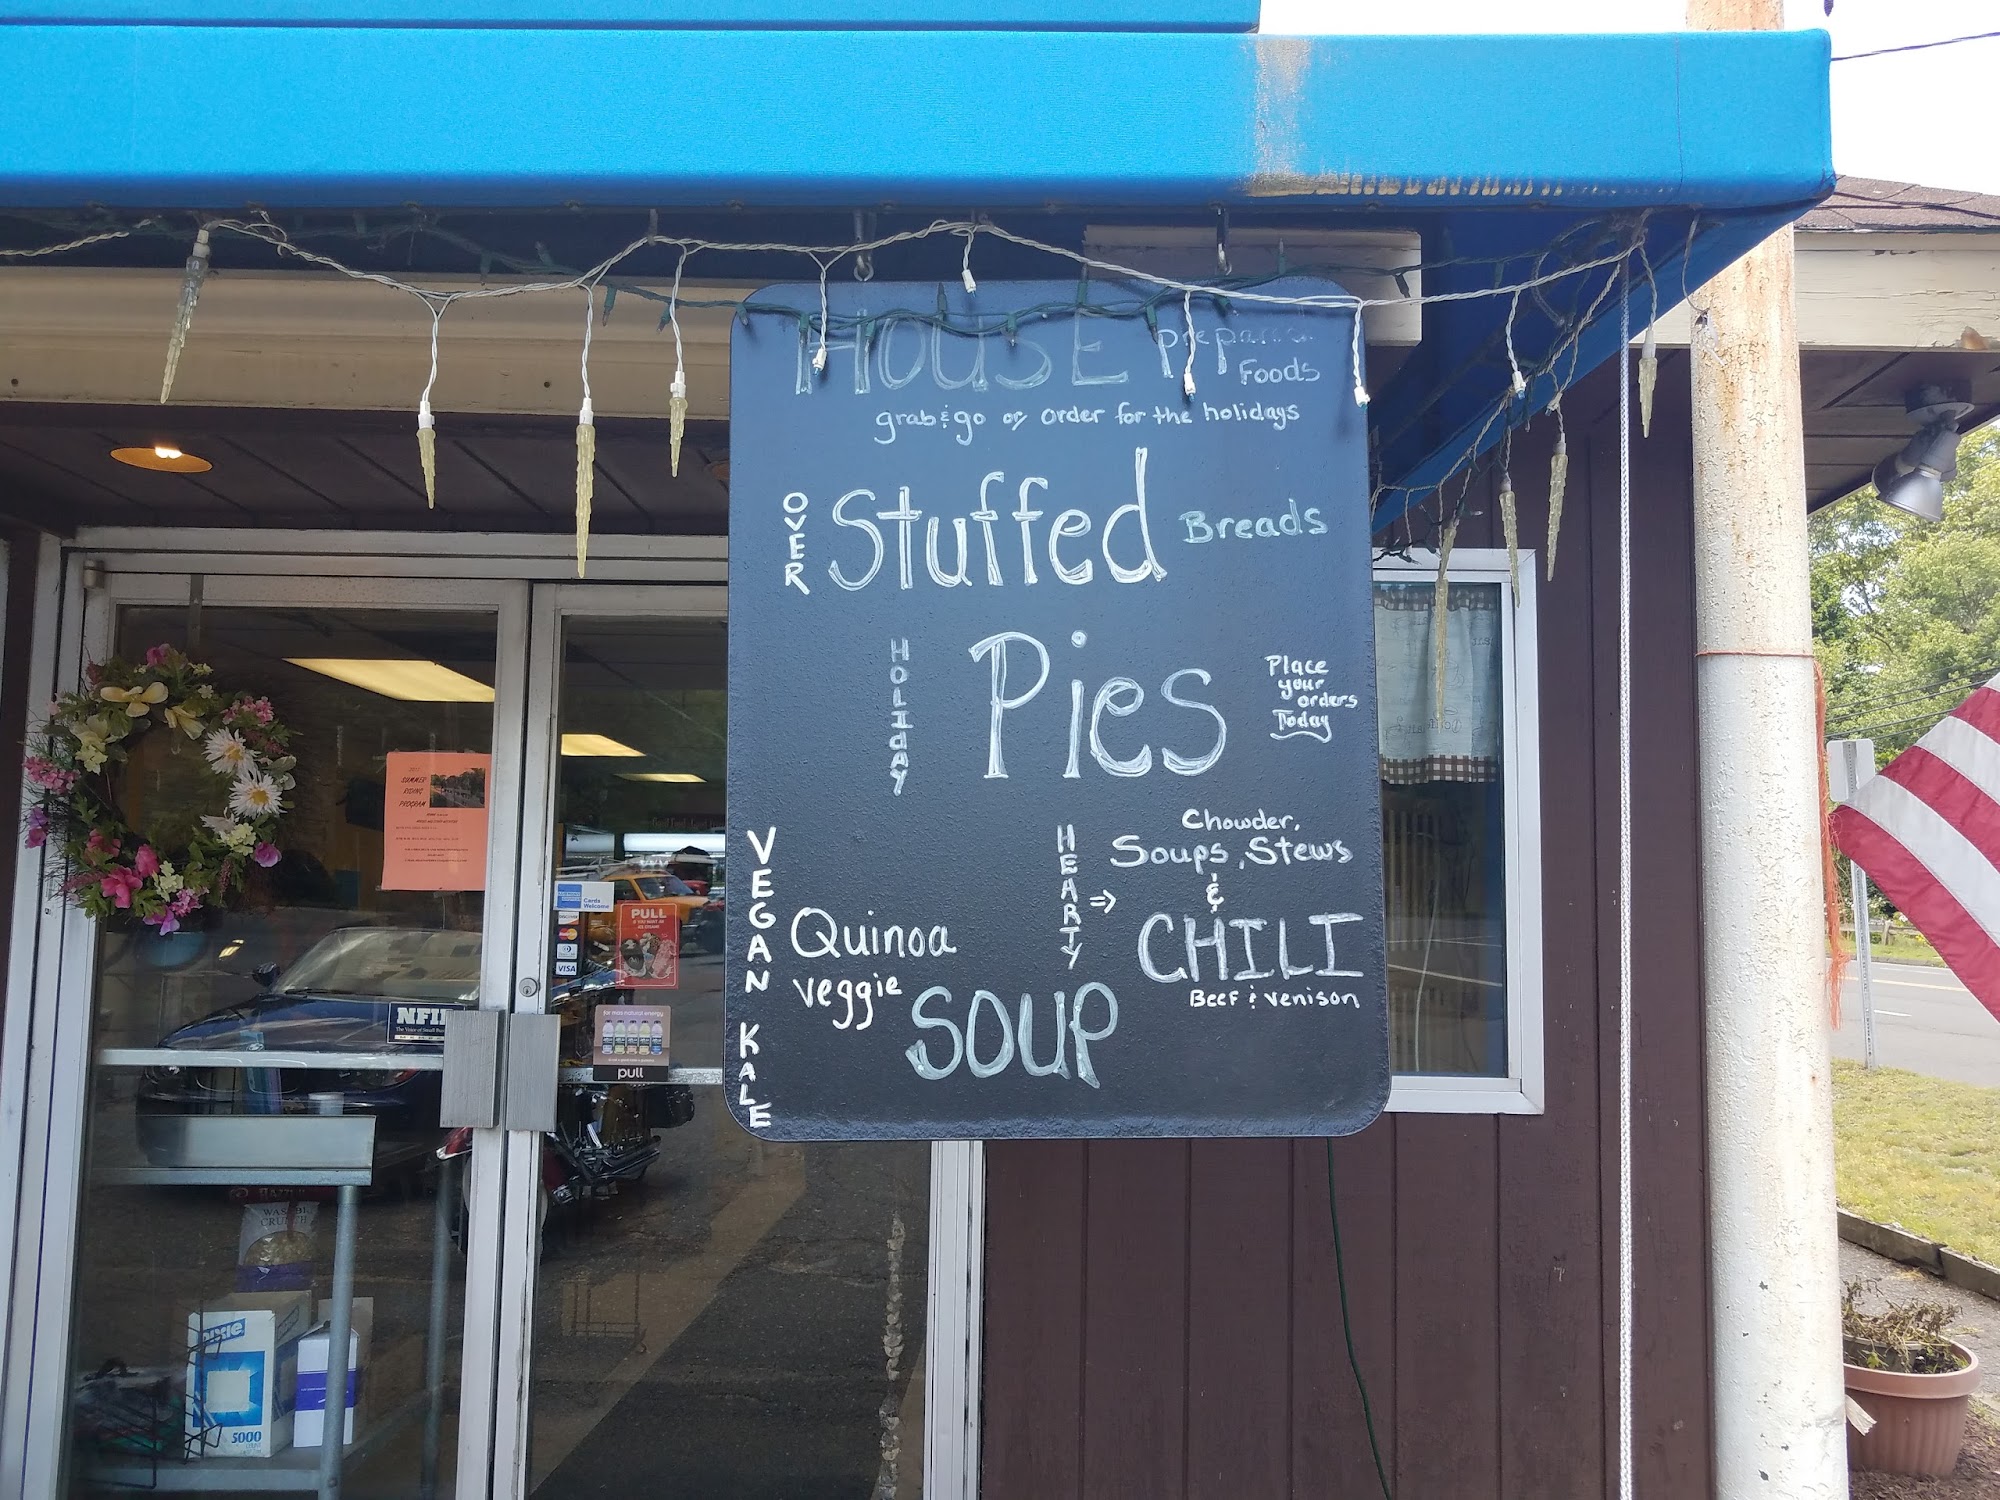 HOUSE prepared
Foods
grab & go or order for the holidays
OVER Stuffed Breads
HOLIDAY Pies
Place
your
orders
Today
VEGAN KALE
Quinoa
veggie
SOUP
HEARTY ⇒
Chowder,
Soups, Stews
&
CHILI
Beef & Venison
SUMMER
RIDING
PROGRAM
Cards
Welcome
DISCOVER
VISA
PULL
NFIB
The Voice of Small Business
MEMBER
pull
WASABI
CRUNCH
DIXIE
5000